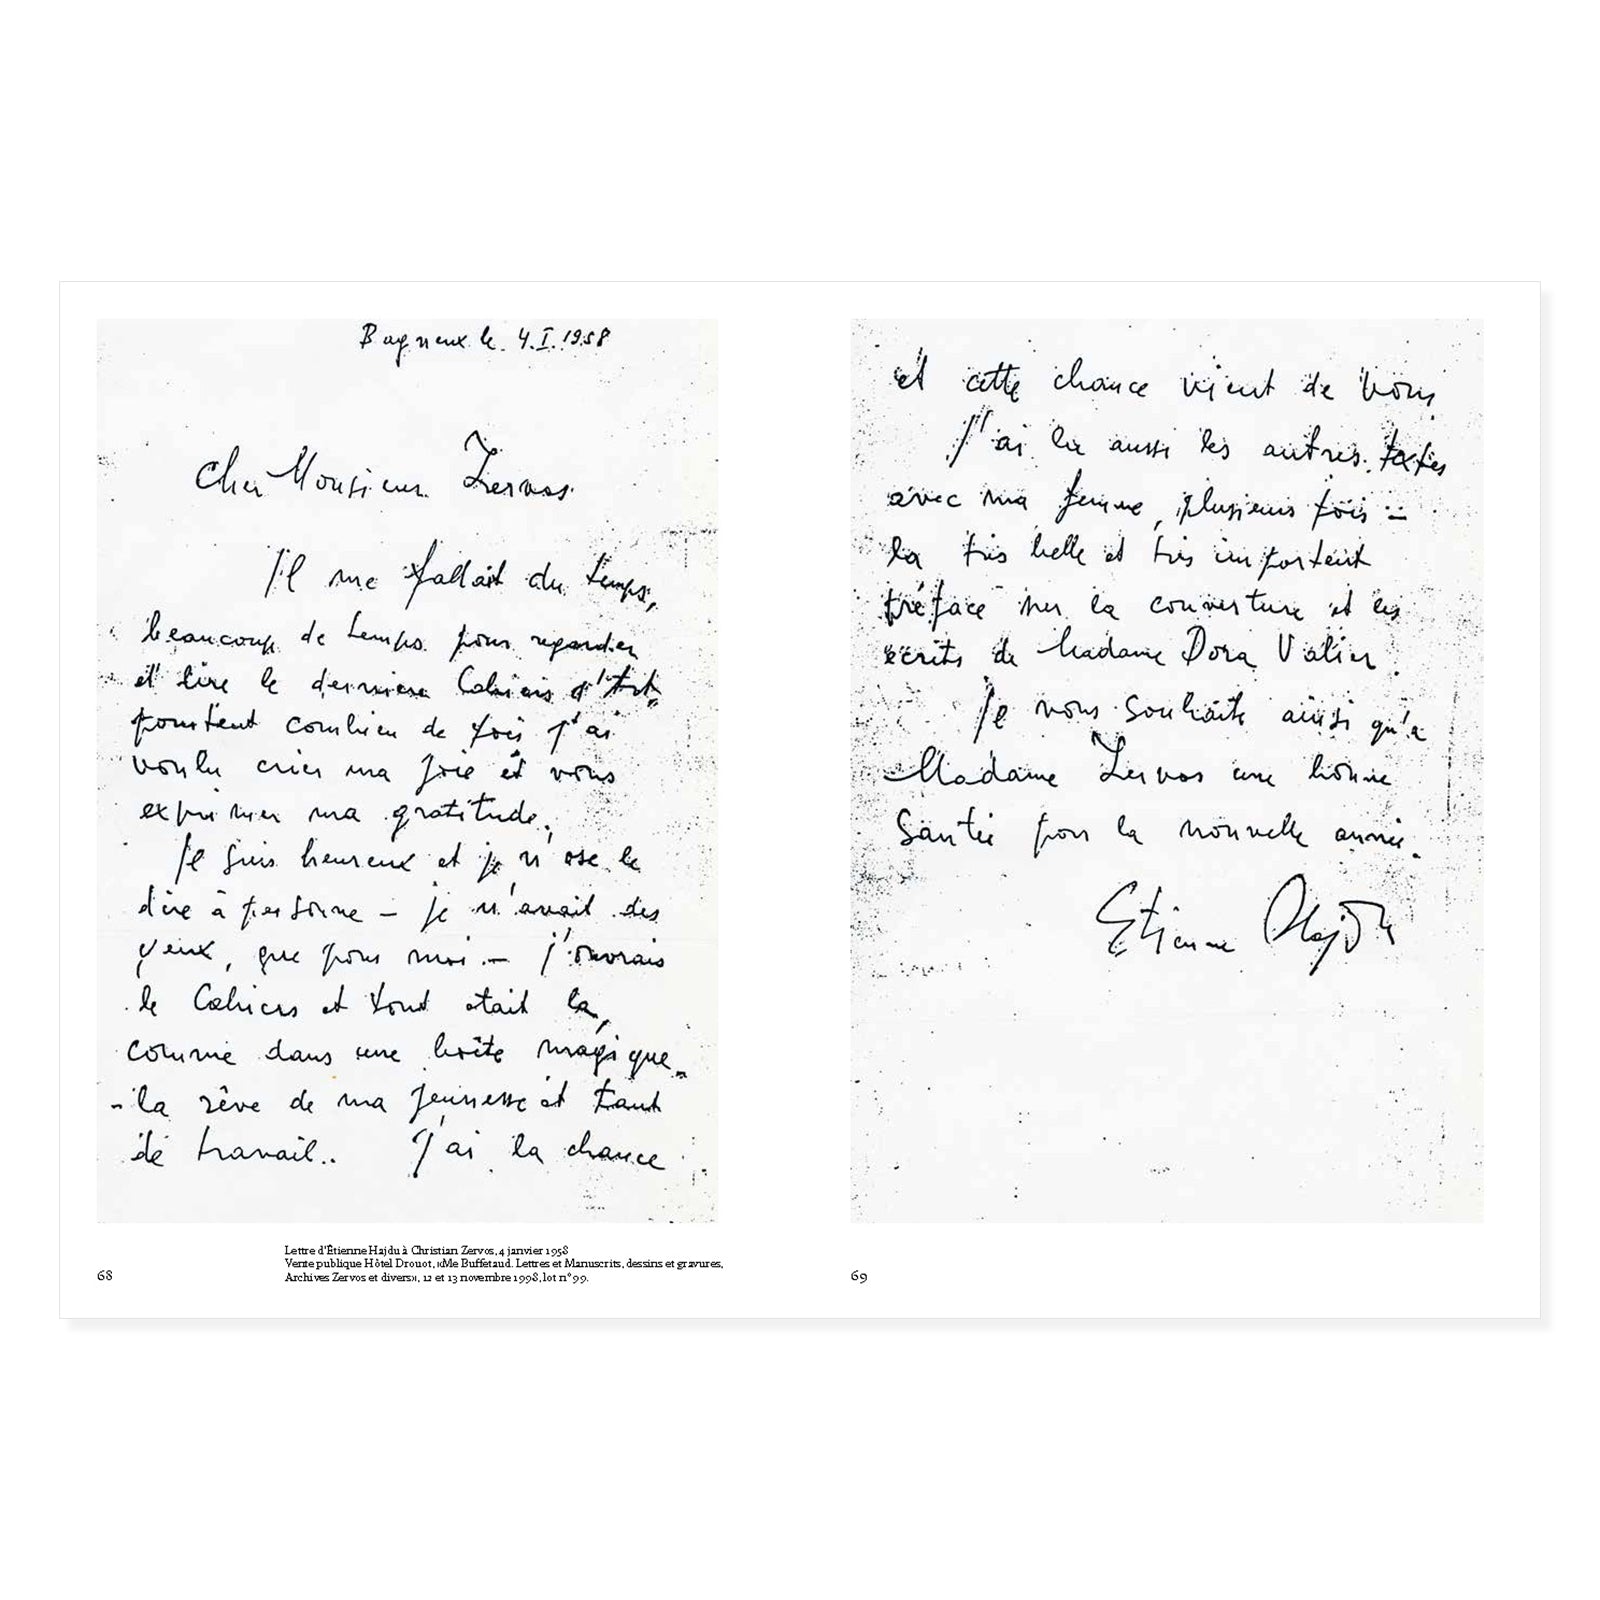 Bagneux le 4.I.1958
Cher Monsieur Zervos.
Il me fallait du temps,
beaucoup de temps pour regarder
et lire le derniere Cahiers d'Art,
pourtent combien de fois j'ai
voulu crier ma joie et vous
exprimer ma gratitude.
Je suis heureux et je n'ose le
dire à personne – je n'avait des
yeux, que pour moi – j'ouvrais
le Cahiers et tout etait la,
comme dans une boîte magique –
– la rêve de ma jeunesse et tant
de travail.. J'ai la chance
68
Lettre d'Étienne Hajdu à Christian Zervos, 4 janvier 1958
Vente publique Hôtel Drouot, «Me Buffetaud. Lettres et Manuscrits, dessins et gravures,
Archives Zervos et divers», 12 et 13 novembre 1998, lot n° 99.
et cette chance vient de vous.
J'ai lu aussi les autres textes
avec ma femme, plusieurs fois –
la très belle et très importent
préface sur la couverture et les
écrits de Madame Dora Valier.
Je vous souhaite ainsi qu'a
Madame Zervos une bonne
Santée pour la nouvelle année.
Etienne Hajdu
69